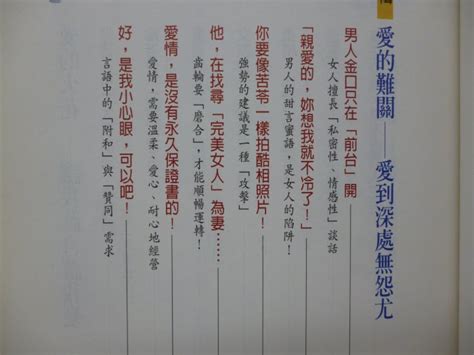 愛的難關——愛到深處無怨尤
男人金口只在「前台」開
女人擅長「私密性、情感性」談話
「親愛的，妳想我就不冷了！」
男人的甜言蜜語，是女人的陷阱！
你要像苦苓一樣拍酷相照片！
強勢的建議是一種「攻擊」
他，在找尋「完美女人」為妻……
齒輪要「磨合」，才能順暢運轉！
愛情，是沒有永久保證書的！
愛情，需要溫柔、愛心、耐心地經營
好，是我小心眼，可以吧！
言語中的「附和」與「贊同」需求